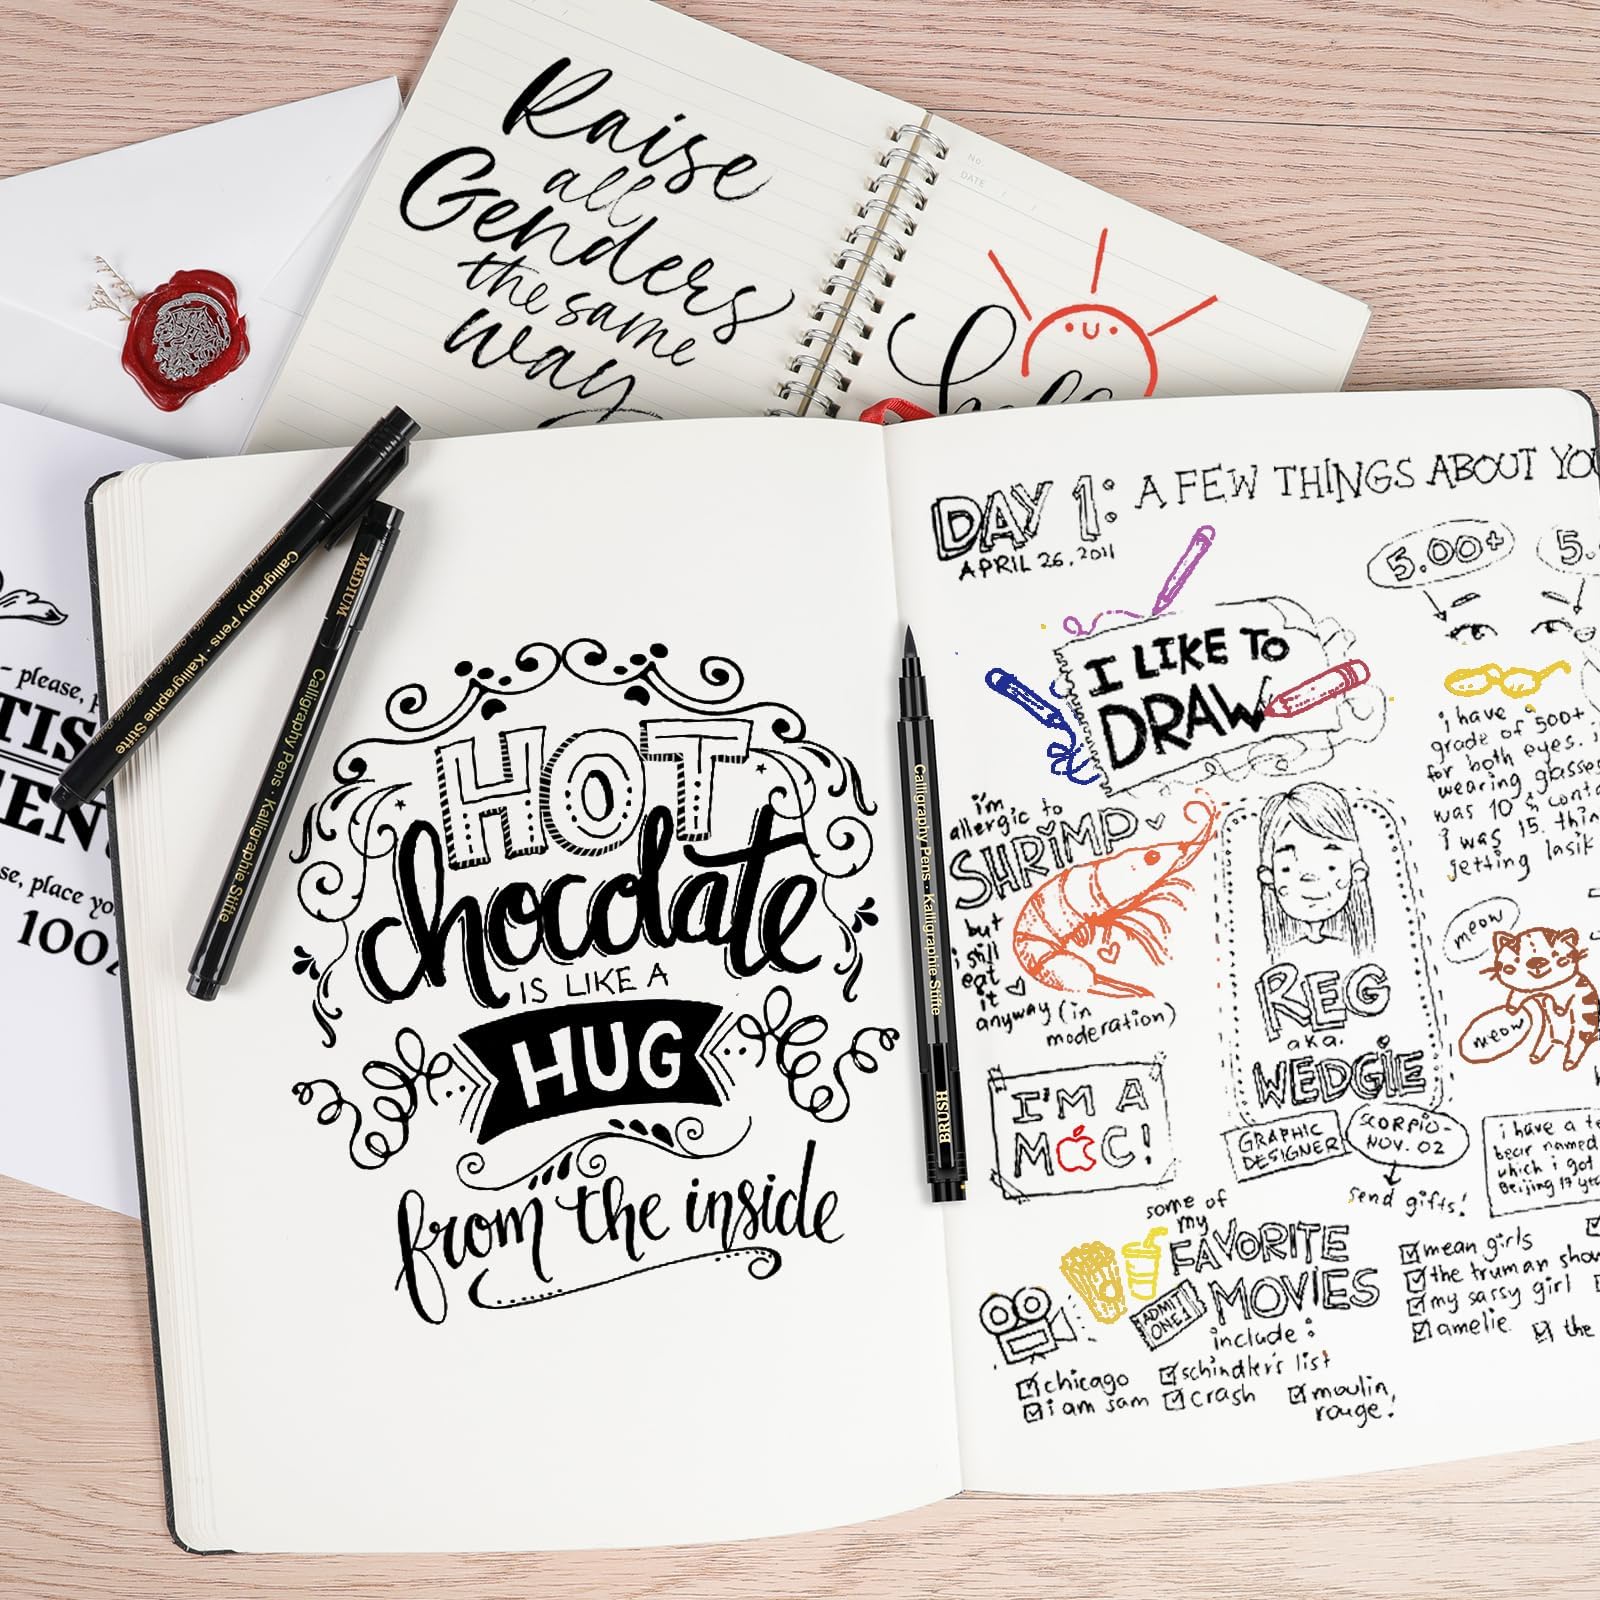 Raise
all
Genders
the same
way
No.
DATE
hello
please,
TIS
EN
se, place yo
100
Calligraphy Pens · Kalligraphie Stifte
MEDIUM
Calligraphy Pens · Kalligraphie Stifte
HOT
chocolate
IS LIKE A
HUG
from the inside
Calligraphy Pens · Kalligraphie Stifte
BRUSH
DAY 1: A FEW THINGS ABOUT YOU
APRIL 26, 2011
5.00+
5.
I LIKE TO
DRAW
i have a
grade of 500+
for both eyes. i
wearing glasses
was 10 & conta
i was 15. thin
getting lasik
i'm
allergic to
SHRIMP
but
i still
eat
it
anyway (in
moderation)
REG
a.k.a.
WEDGIE
GRAPHIC
DESIGNER
SCORPIO-
NOV. 02
send gifts!
meow
meow
I'M A
MC!
i have a te
bear named
which i got
Beijing 17 yrs
some of
my
FAVORITE
MOVIES
include:
ADMIT
ONE!
chicago
i am sam
schindler's list
crash
moulin
rouge!
mean girls
the truman show
my sassy girl
amelie
the